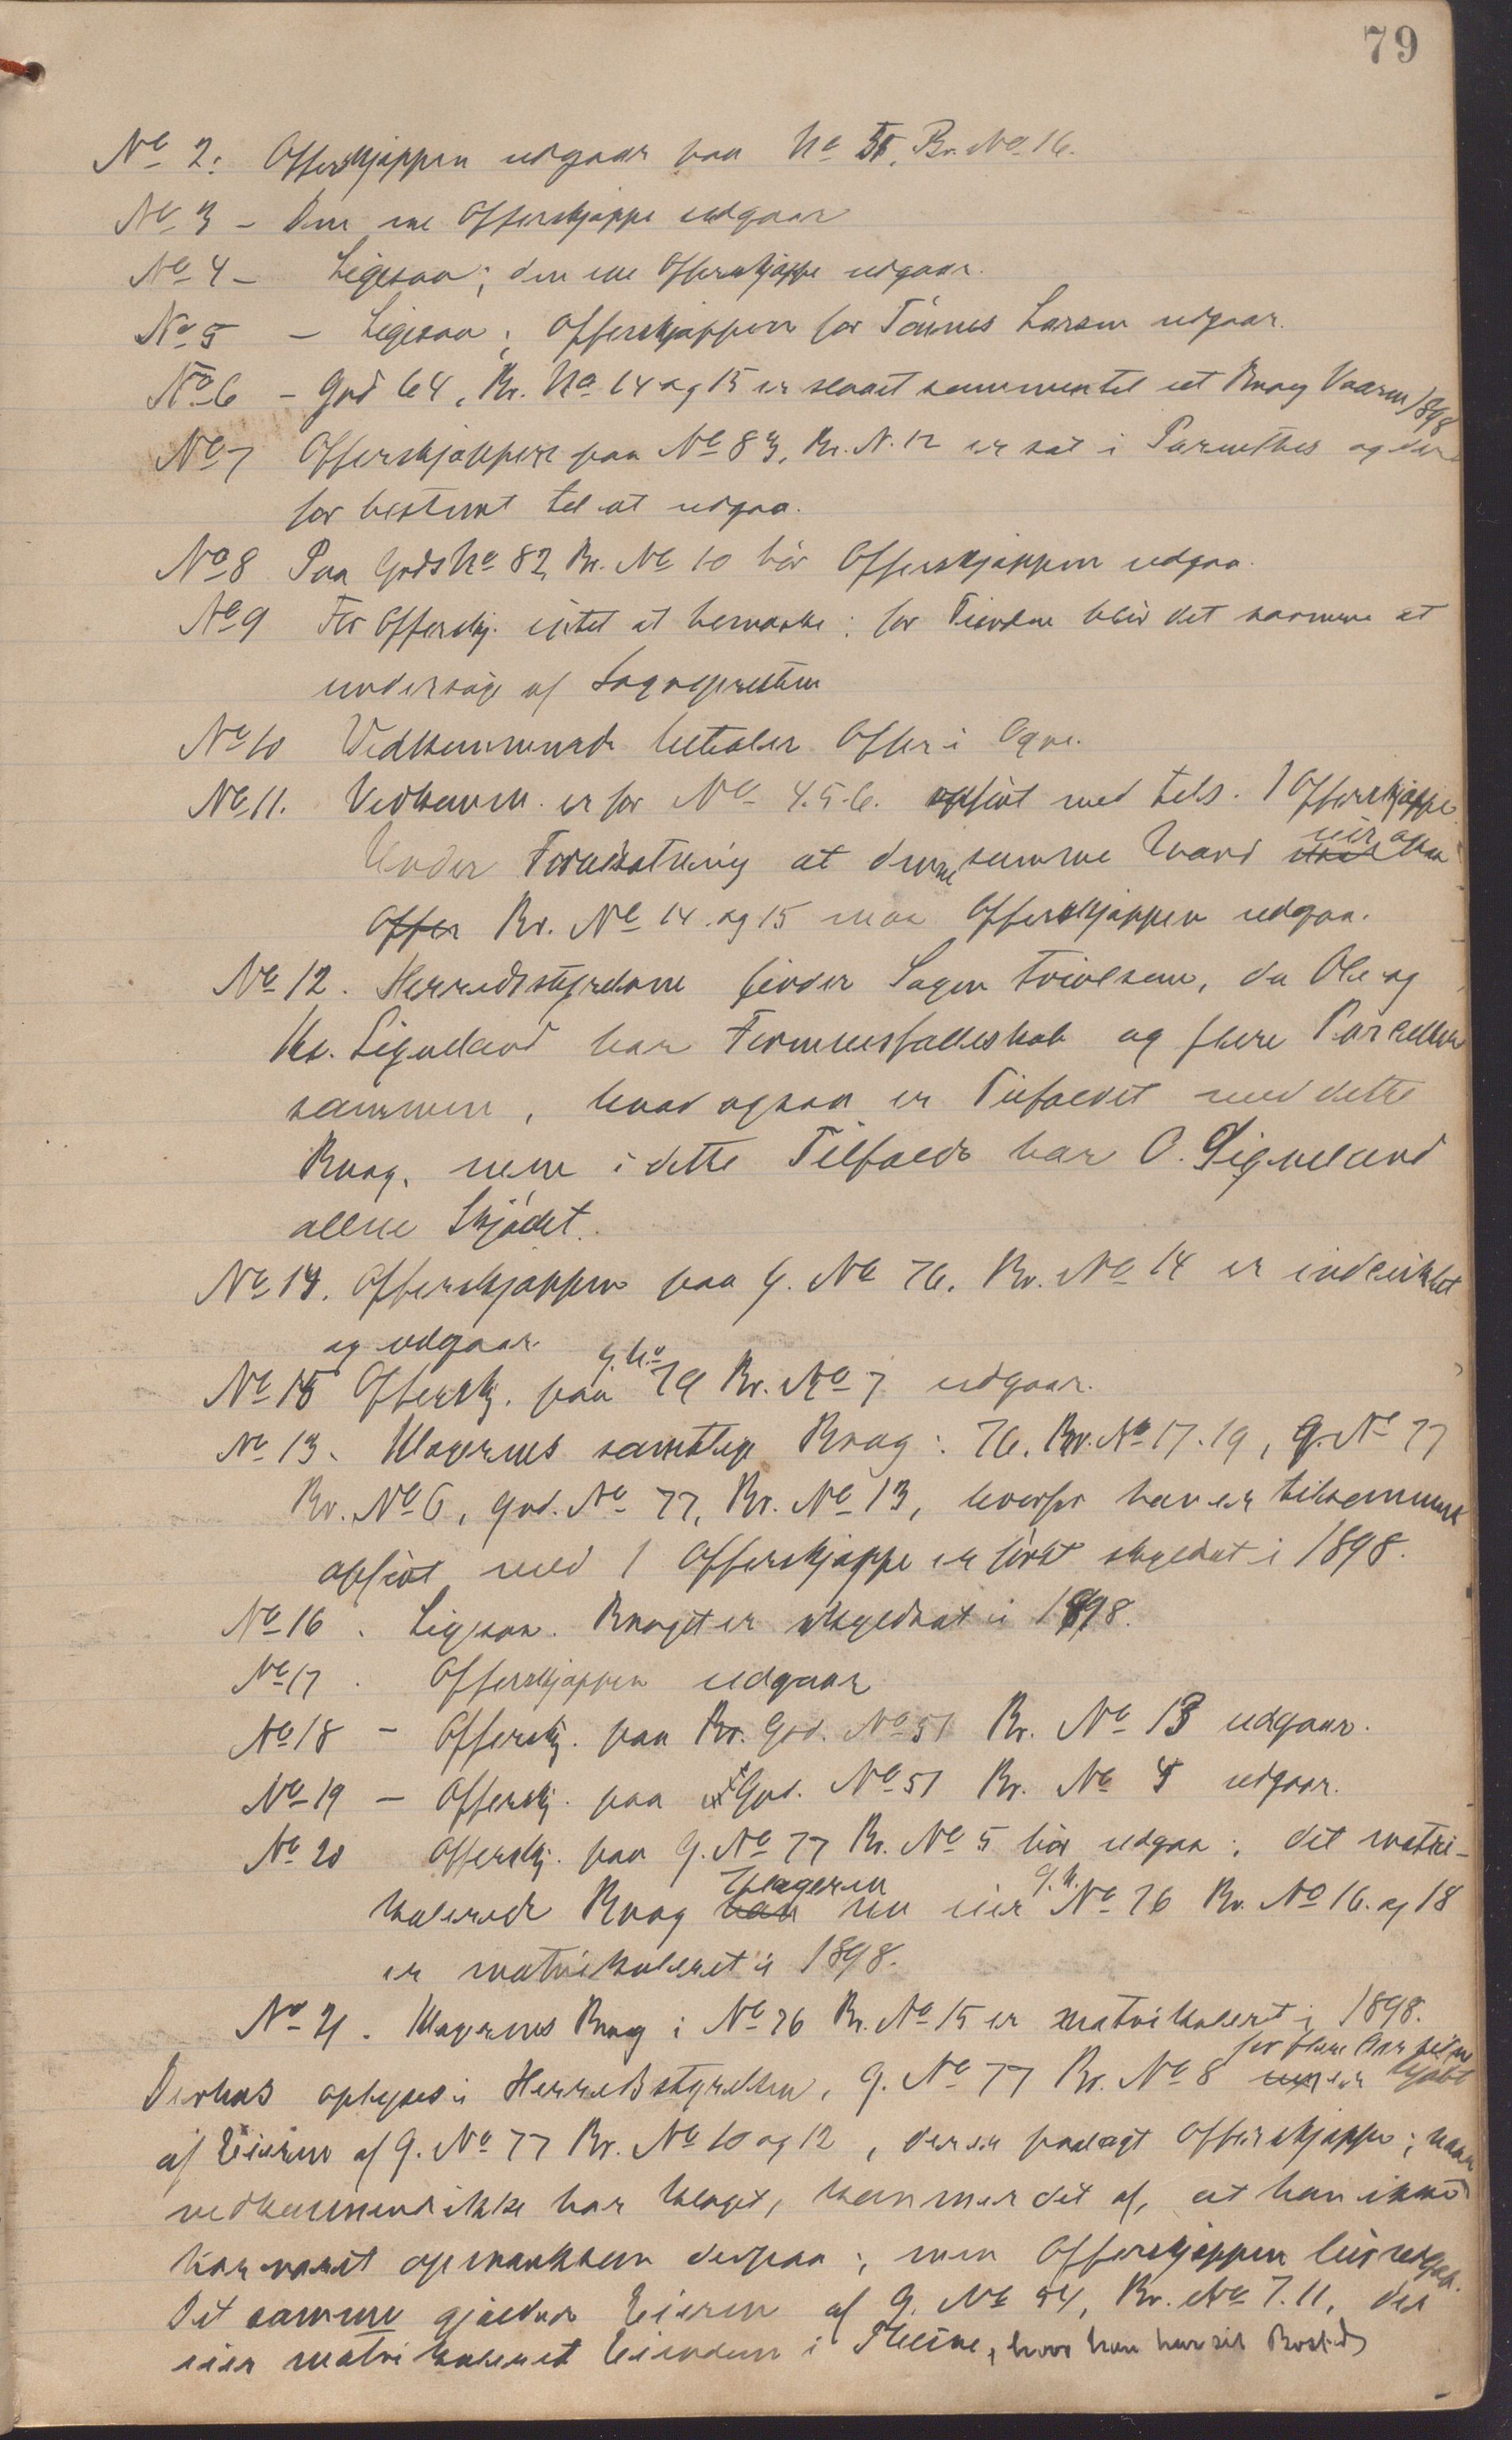 79
No 2. Offerskjæppen udgaar paa No 35, Br. No 16.
No 3 - Den ene Offerskjæppe udgaar
No 4 - Ligesaa; den ene Offerskjæppe udgaar.
No 5 - Ligesaa; Offerskjæppen for Tønnes Larsen udgaar.
No 6 - Grd 64, Br. No 14 og 15 er slaaet sammen til et Brug Vaaren 1898
No 7 Offerskjæppen paa No 83, Br. N. 12 er sat i Parenthes og der
for bestemt til at udgaa.
No 8 Paa Gods No 82, Br. No 10 bør Offerskjæppen udgaa.
No 9 For Offerskj. intet at bemærke; for Tienden blir det samme at
undersøge af Sognepresten
No 10 Vedkommende betaler Offer i Ogne.
No 11. Vedkomm. er for No 4.5.6. opført med tils. 1 Offerskjæppe.
Under Forudsætning at denne samme Mand eier ogsaa
Offer Br. No 14 og 15 maa Offerskjæppen udgaa.
No 12. Herredsstyrelsen finder Sagen tvivlsom, da Ole og
Sigveland har Formuesfælleskab og flere Parceller
sammen, hvad ogsaa er Tilfældet med dette
Brug, men i dette Tilfælde har O. Sigveland
allene Skjødet.
No 14. Offerskjæppen paa G. No 76, Br. No 14 er
og udgaar.
No 15 Offerskj. paa G. No 79 Br. No 7 udgaar.
No 13. Klagerens samtlige Brug: 76, Br. No 17.19, G. No 77
Br. No 6, Grd. No 77, Br. No 13, hvorfor han er tilsammen
opført med 1 Offerskjæppe er først skyldsat i 1898.
No 16. Ligesaa. Bruget er skyldsat i 1898.
No 17. Offerskjæppen udgaar
No 18 - Offerskj. paa Br. Grd. No 51 Br. No 13 udgaar.
No 19 - Offerskj. paa Grd. No 51 Br. No 4 udgaar.
No 20 Offerskj. paa G. No 77 Br. No 5 bør udgaa; det matri-
kulerede Brug Klageren nu eier G. N. No 76 Br. No 16. og 18
er matrikuleret i 1898.
No 21. Klagerens Brug i No 76 Br. No 15 er matrikuleret i 1898.
Derhos oplyses i Herredsstyrelsen, G. No 77 Br. No 8 er for flere Aar siden kjøbt
af Eieren af G. No 77 Br. No 10 og 12, der er paalagt Offerskjæppe; naar
vedkommende ikke har klaget, kommer det af, at han ikke
har været opmærksom derpaa; men Offerskjæppen bør udgaa.
Det samme gjælder Eieren af G. No 54, Br. No 7.11, der
eier matrikuleret Eiendom i Kleive, hvor han har sit Bosted